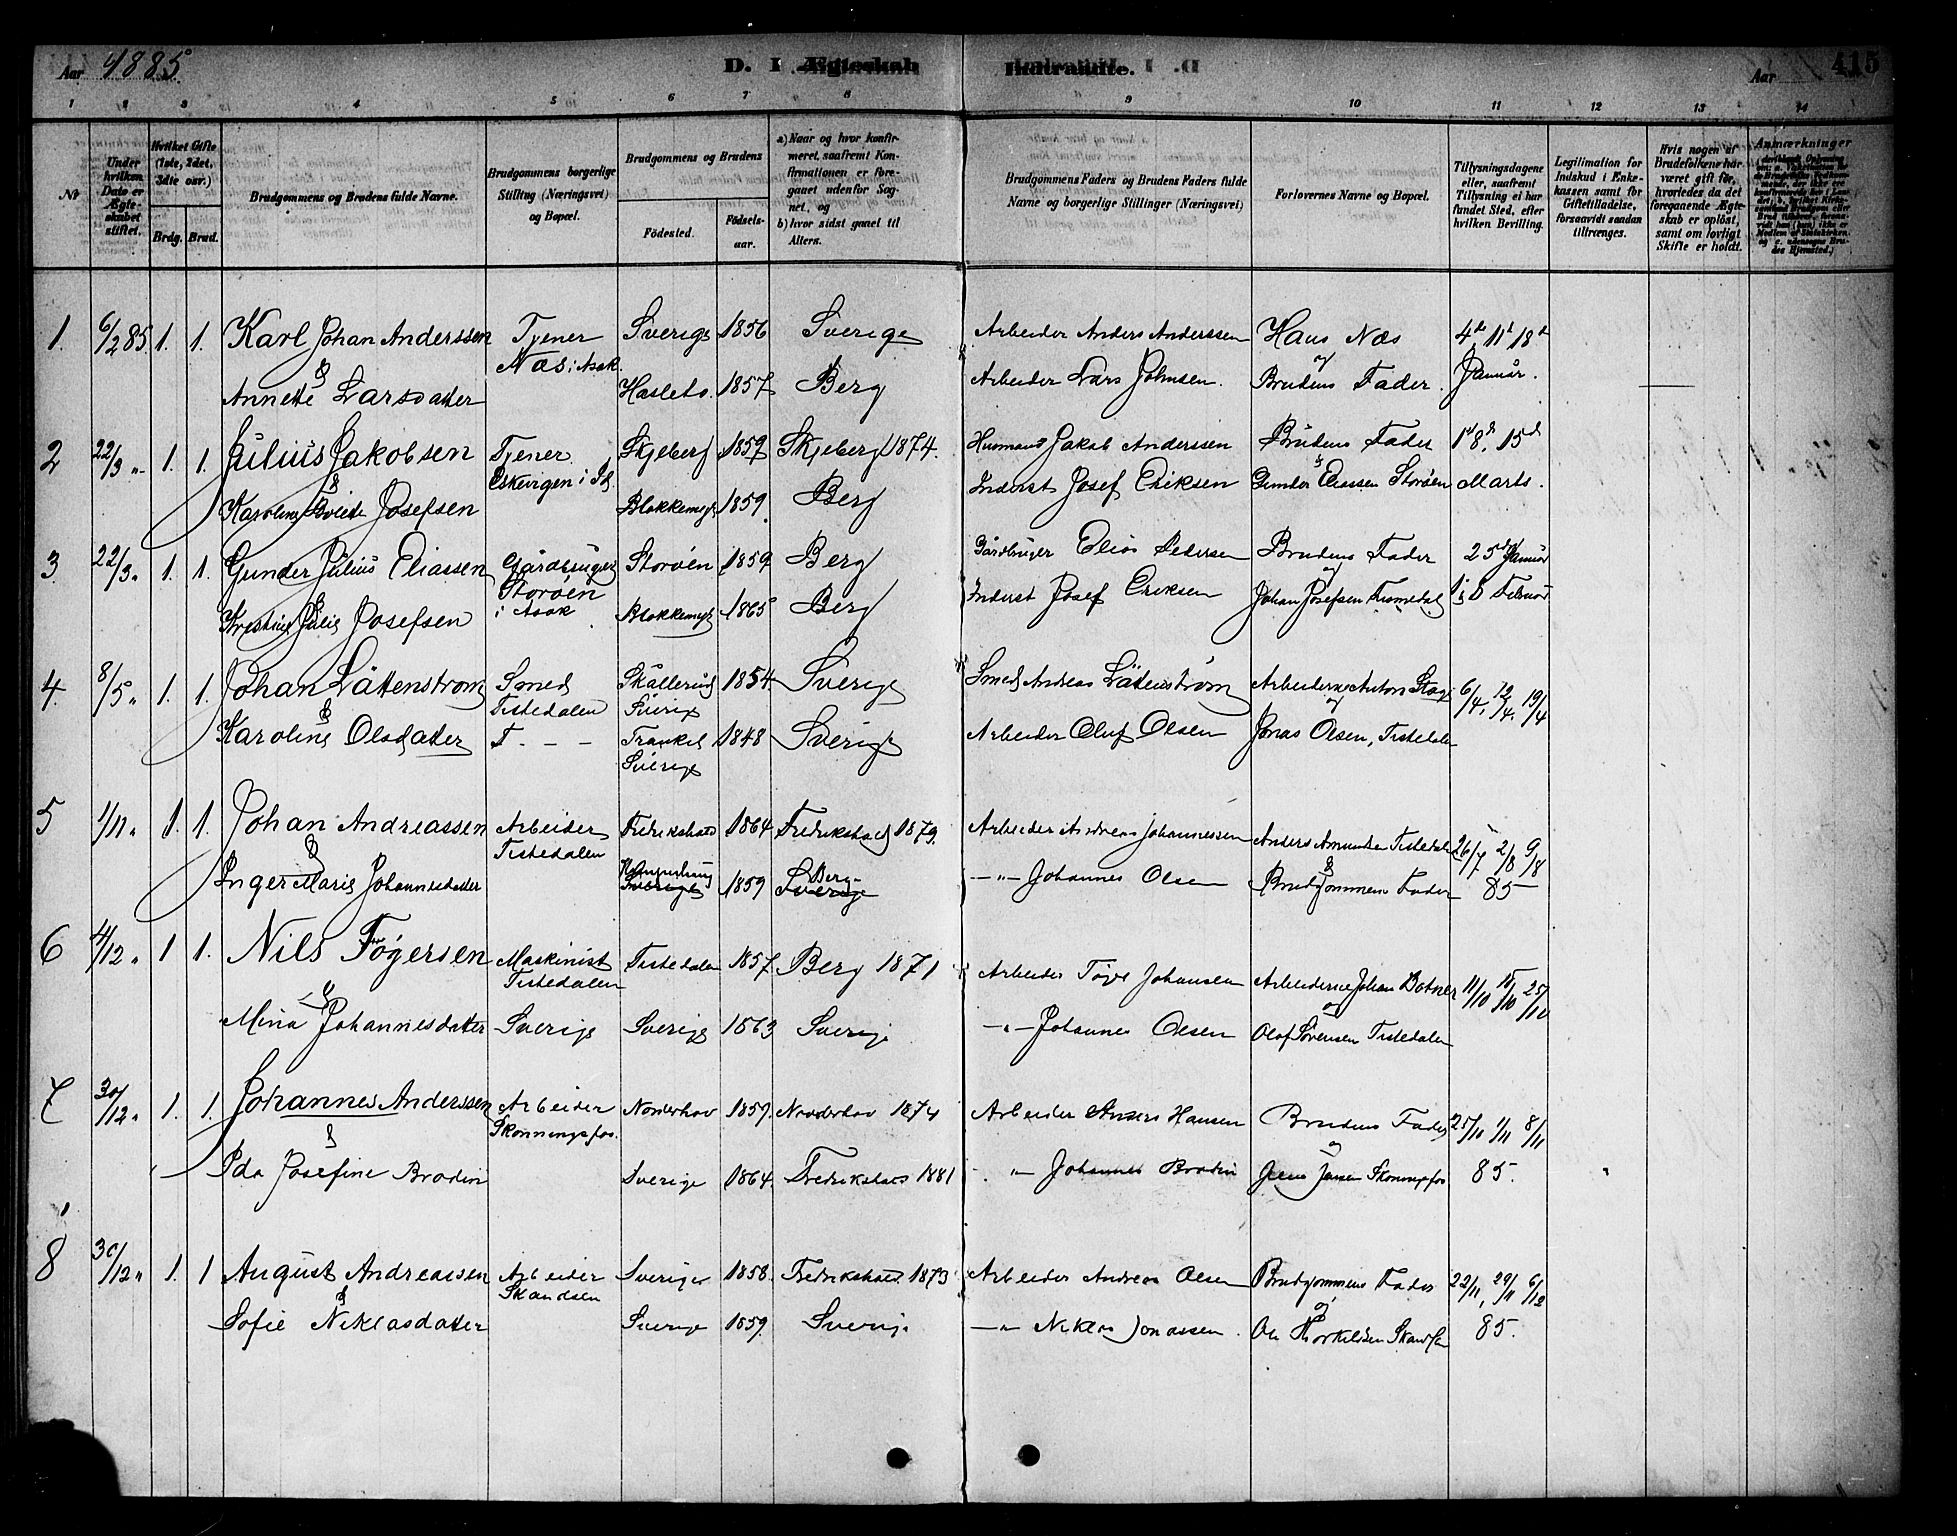 Aar 1885
D. I Ægteskab Indtraadte.
Aar
415
1 2 3 4 5 6 7 8 9 10 11 12 13 14
Nr
Under hvilken Dato er Ægteskabet stiftet.
Hvilket Gifte (1ste, 2det, 3die osv.)
Brdg. Brud.
Brudgommens og Brudens fulde Navne.
Brudgommens borgerlige Stilling (Næringsvei) og Bopæl.
Brudgommens og Brudens
Födested.
Födselsaar.
a) Naar og hvor konfirmeret, saafremt Konfirmationen er foregaaet udenfor Sognet, og
b) hvor sidst gaaet til Alters.
Brudgommens Faders og Brudens Faders fulde Navne og borgerlige Stillinger (Næringsvei)
Forlovernes Navne og Bopæl.
Tillysningsdagene eller, saafremt Tillysning ei har fundet Sted, efter hvilken Bevilling.
Legitimation for Indskud i Enkekassen samt for Giftetilladelse, forsaavidt saadan tiltrænges.
Hvis nogen af Brudefolkene har været gift för, hvorledes da det foregaaende Ægteskab er oplöst, samt om lovligt Skifte er holdt.
Anmærkninger
1. 6/2 85 1. 1. Karl Johan Anderssen Tjener Sverige 1856 Sverige Arbeider Anders Anderssen Hans Næs 4de 11te 18de
& Næs i Asak. og Januar.
Annette Larsdatter Hasleto. 1857 Berg Arbeider Lars Johnsen. Brudens Fader.
2 22/3 " 1. 1. Julius Jakobsen Tjener Skjeberg 1859 Skjeberg 1874. Husmand Jakob Anderssen Brudens Fader 1ste 8de 15de
& Eskevigen i Id. &
Karoline Josefsen 1859. Berg Inderst Josef Eriksen Gunder Eliassen Storøen Marts.
3 22/3 " 1. 1. Gunder Julius Eliassen Gårdbruger Storøen 1859 Berg Gårdbruger Elias Pedersen Brudens Fader 25de Januar
& Storøen i Asak og
Kristine Julie Josefsen 1865 Berg Inderst Josef Eriksen Johan Josefsen 1 & 8 Februar
4. 8/5 " 1. 1. Johan Lättenström Smed Skållerud 1854 Sverige Smed Andreas Lättenström Arbeiderne Anton 6/4, 12/4, 19/4
& Tistedalen Sverige og
Karoline Olsdatter T - - - Sverige 1848 Sverige Arbeider Oluf Olsen Jonas Olsen, Tistedalen
5 1/11 " 1. 1. Johan Andreassen Arbeider Fredrikshald 1864 Fredrikshald 1879. Arbeider Andreas Johannessen Anders Amundsen Tistedalen 26/7 2/8 9/8
& Tistedalen &
Inger Marie Johannesdatter Sverige 1859 Berg Sverige -"- Johannes Olsen Brudgommens Fader 85
6 4/12 " 1 1. Nils Tøgersen Maskinist Tistedalen 1857 Berg 1871 Arbeider Johansen Arbeiderne Johan Botner 11/10 18/10 25/10
& Tistedalen og
Mina Johannesdatter Sverige Sverige 1863 Sverige -"- Johannes Olsen Olof Sørensen Tistedalen
7 30/12 " 1. 1. Johannes Anderssen Arbeider Norderhov 1859. Norderhov 1874 Arbeider Anders Hansen Brudens Fader 25/10 1/11 8/11
& Skonningsfos. og
Ida Josefine Brodin Sverige 1864. Fredrikshald 1881 " Johannes Brodin Jens Jensen Skonningsfos 85.
8 30/12 " 1. 1 August Andreassen Arbeider Sverige 1858. Fredrikshald 1873 Arbeider Andreas Olsen Brudgommens Fader 22/11, 29/11 6/12
& Skandsen og
Sofie Niklasdatter Sverige 1859. Sverige -"- Niklas Jonassen. Ole Thorkildsen Skandsen 85.